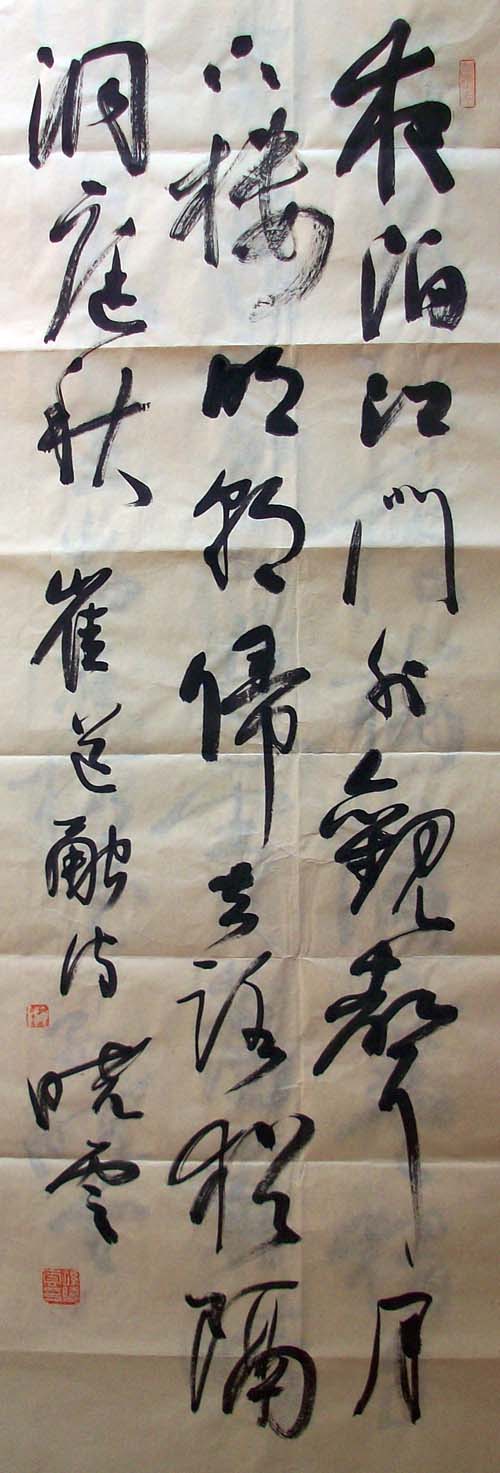 夜泊江門外觀聲月
下樓明朝歸去路猶隔
洞庭秋 崔道融詩 曉雲